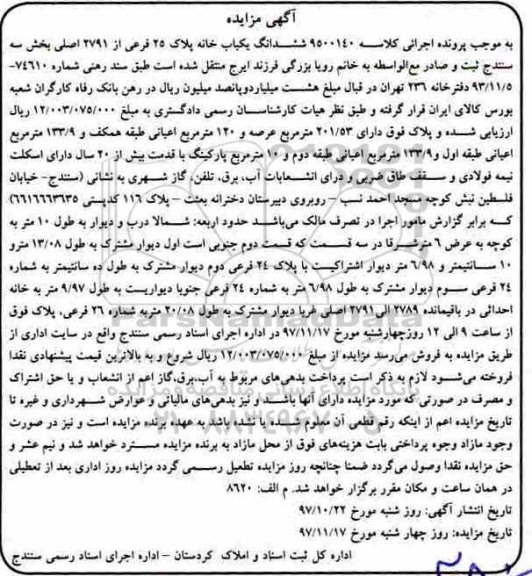 آگهی مزایده
به موجب پرونده اجرائی کلاسه ۹۵۰۰۱۴۰ ششدانگ یکباب خانه پلاک ۲۵ فرعی از ۲۷۹۱ اصلی بخش سه
سنندج ثبت و صادر مع‌الواسطه به خانم رویا بزرگی فرزند ایرج منتقل شده است طبق سند رهنی شماره ۷۴۶۱۰-
۹۳/۱۱/۵ دفترخانه ۲۳۶ تهران در قبال مبلغ هشت میلیاردوپانصد میلیون ریال در رهن بانک رفاه کارگران شعبه
بورس کالای ایران قرار گرفته و طبق نظر هیات کارشناسان رسمی دادگستری به مبلغ ۱۲/۰۰۳/۰۷۵/۰۰۰ ریال
ارزیابی شده و پلاک فوق دارای ۲۰۱/۵۳ مترمربع عرصه و ۱۲۰ مترمربع اعیانی طبقه همکف و ۱۳۳/۹ مترمربع
اعیانی طبقه اول و۱۳۳/۹ مترمربع اعیانی طبقه دوم و ۱۰ مترمربع پارکینگ با قدمت بیش از ۲۰ سال دارای اسکلت
نیمه فولادی و سقف طاق ضربی و درای انشعابات آب، برق، تلفن، گاز شهری به نشانی (سنندج- خیابان
فلسطین نبش کوچه مسجد احمد نسب – روبروی دبیرستان دخترانه بعثت – پلاک ۱۱۶ کدپستی ۶۶۱۶۶۶۳۶۳۵)
که برابر گزارش مامور اجرا در تصرف مالک می‌باشد حدود اربعه: شمالا درب و دیوار به طول ۱۰ متر به
کوچه به عرض ۶ مترشرقا در سه قسمت که قسمت دوم جنوبی است اول دیوار مشترک به طول ۱۳/۰۸ مترو
۱۰ سانتیمتر و ۶/۹۸ متر دیوار اشتراکیت با پلاک ۲۴ فرعی دوم دیوار مشترک به طول ده سانتیمتر به شماره
۲۴ فرعی سوم دیوار مشترک به طول ۶/۹۸ متر به شماره ۲۴ فرعی جنوبا دیواریست به طول ۹/۹۷ متر به خانه
احداثی در باقیمانده ۲۷۸۹ الی ۲۷۹۱ اصلی غربا دیوار مشترک به طول ۲۰/۰۸ متربه شماره ۲۶ فرعی، پلاک فوق
از ساعت ۹ الی ۱۲ روزچهارشنبه مورخ ۹۷/۱۱/۱۷ در اداره اجرای اسناد رسمی سنندج واقع در سایت اداری از
طریق مزایده به فروش می‌رسد مزایده از مبلغ ۱۲/۰۰۳/۰۷۵/۰۰۰ ریال شروع و به بالاترین قیمت پیشنهادی نقدا
فروخته می‌شود لازم به ذکر است پرداخت بدهی‌های مربوط به آب،برق،گاز اعم از انشعاب و یا حق اشتراک
و مصرف در صورتی که مورد مزایده دارای آنها باشد و نیز بدهی‌های مالیاتی و عوارض شهرداری و غیره تا
تاریخ مزایده اعم از اینکه رقم قطعی آن معلوم شده یا نشده باشد به عهده برنده مزایده است و نیز در صورت
وجود مازاد وجوه پرداختی بابت هزینه‌های فوق از محل مازاد به برنده مزایده مسترد خواهد شد و نیم عشر و
حق مزایده نقدا وصول می‌گردد ضمنا چنانچه روز مزایده تعطیل رسمی گردد مزایده روز اداری بعد از تعطیلی
در همان ساعت و مکان مقرر برگزار خواهد شد. م الف: ۸۶۲۰
تاریخ انتشار آگهی: روز شنبه مورخ ۹۷/۱۰/۲۲
تاریخ مزایده: روز چهار شنبه مورخ ۹۷/۱۱/۱۷
اداره کل ثبت اسناد و املاک کردستان – اداره اجرای اسناد رسمی سنندج